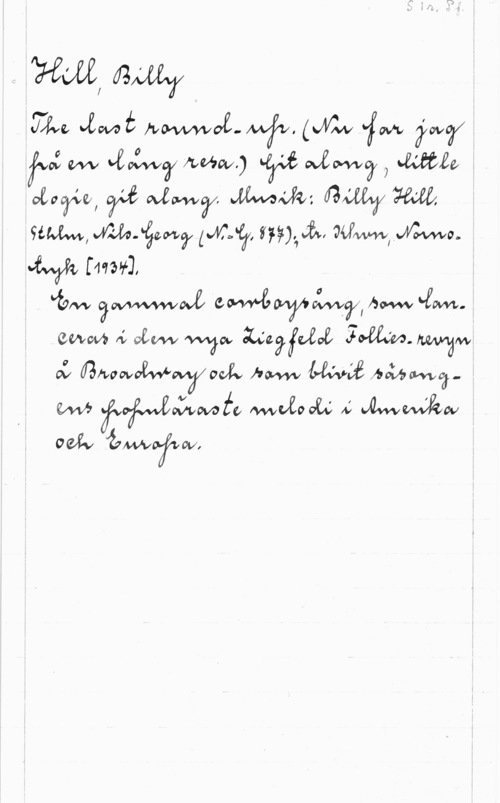 S 1r, 8f.
Hill, Billy
The last round-up. (Nu far jag
på en lång resa.) Git along, little
dogie, git along. Musik: Billy Hill.
Sthlm, Nils-Georg (N.G. 877); tr. Khvn, Norno-
tryk [1934].
En gammal cowboysång, som lan-
ceras i den nya Ziegfeld Follies-revyn
å Broadway och som blivit säsong-
ens populäraste melodi i Amerika
och Europa.